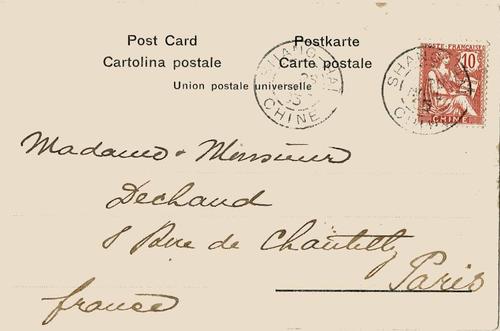 Post Card Postkarte
Cartolina postale Carte postale
Union postale universelle
SHANG-HAI
CHINE
POSTE FRANÇAISE
10
CHINE
SHANG
Madame & Monsieur
Dechaud
8 Rue de Chantilly
Paris
france